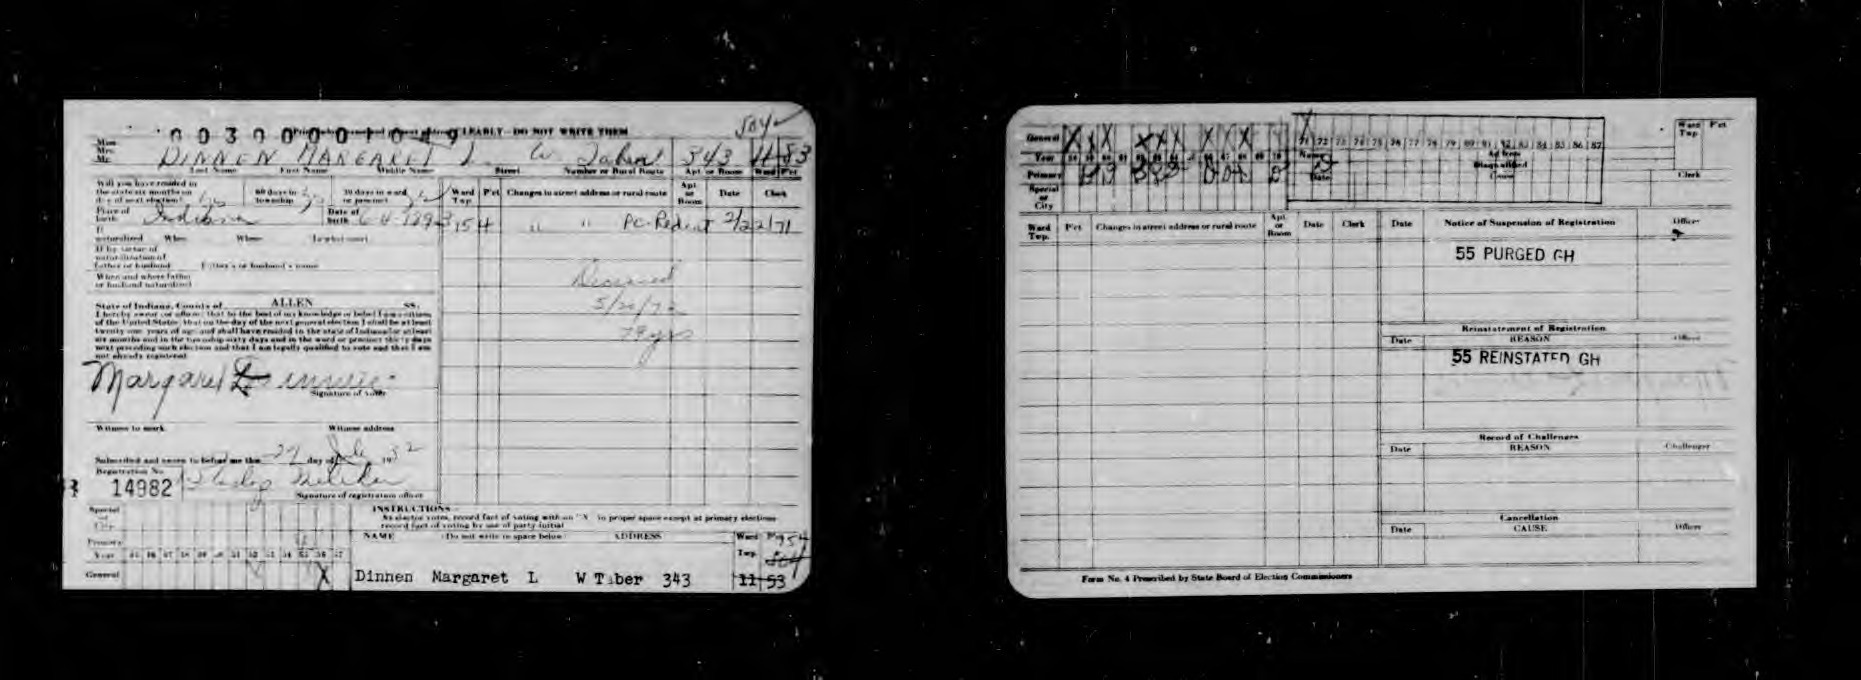 003000001049
CLEARLY - DO NOT WRITE THEM
504
Miss
Mrs.
Mr.
DINNEN MARGARET L. W Taber 343 11 53
Last Name First Name Middle Name Street Number or Rural Route Apt or Room Ward Pct
Will you have resided in the state six months on day of next election? 60 days in township 30 days in ward or precinct
Ward Twp. P'ct Changes in street address or rural route Apt. or Room Date Clerk
Place of birth Indiana Date of birth 6-4-1893
15 4 " " Pc-Redist 2/22/71
If naturalized When Where In what court
If by virtue of naturalization of father or husband Father's or husband's name
When and where father or husband naturalized
Deceased
5/20/72
79 yrs
State of Indiana, County of ALLEN SS.
I hereby swear (or affirm) that to the best of my knowledge or belief I am a citizen
of the United States, that on the day of the next general election I shall be at least
twenty-one years of age and shall have resided in the state of Indiana for at least
six months and in the township sixty days and in the ward or precinct thirty days
next preceding such election and that I am legally qualified to vote and that I am
not already registered
Margaret Dinnen
Signature of voter
Witness to mark Witness address
Subscribed and sworn to before me this 29 day of
Registration No.
14982
Signature of registration officer
Special or City
Primary
Year 45 46 47 48 49 50 51 52 53 54 55 56 57
General X
INSTRUCTIONS
As elector votes, record fact of voting with an "X" in proper space except at primary elections
record fact of voting by use of party initial
NAME (Do not write in space below) ADDRESS Ward Twp.
Dinnen Margaret L W Taber 343 11 53
General X X X X X X X X X
Year 58 59 60 61 62 63 64 65 66 67 68 69 70
71 72 73 74 75 76 77 78 79 80 81 82 83 84 85 86 87
Primary
Special or City
Name
Date
Disqualified
Cause
Ward Twp. P'ct
Clerk
Ward Twp. P'ct Changes in street address or rural route Apt. or Room Date Clerk
Date Notice of Suspension of Registration Officer
55 PURGED GH
Reinstatement of Registration
Date REASON Officer
55 REINSTATED GH
Record of Challenges
Date REASON Challenger
Cancellation
Date CAUSE Officer
Form No. 4 Prescribed by State Board of Election Commissioners